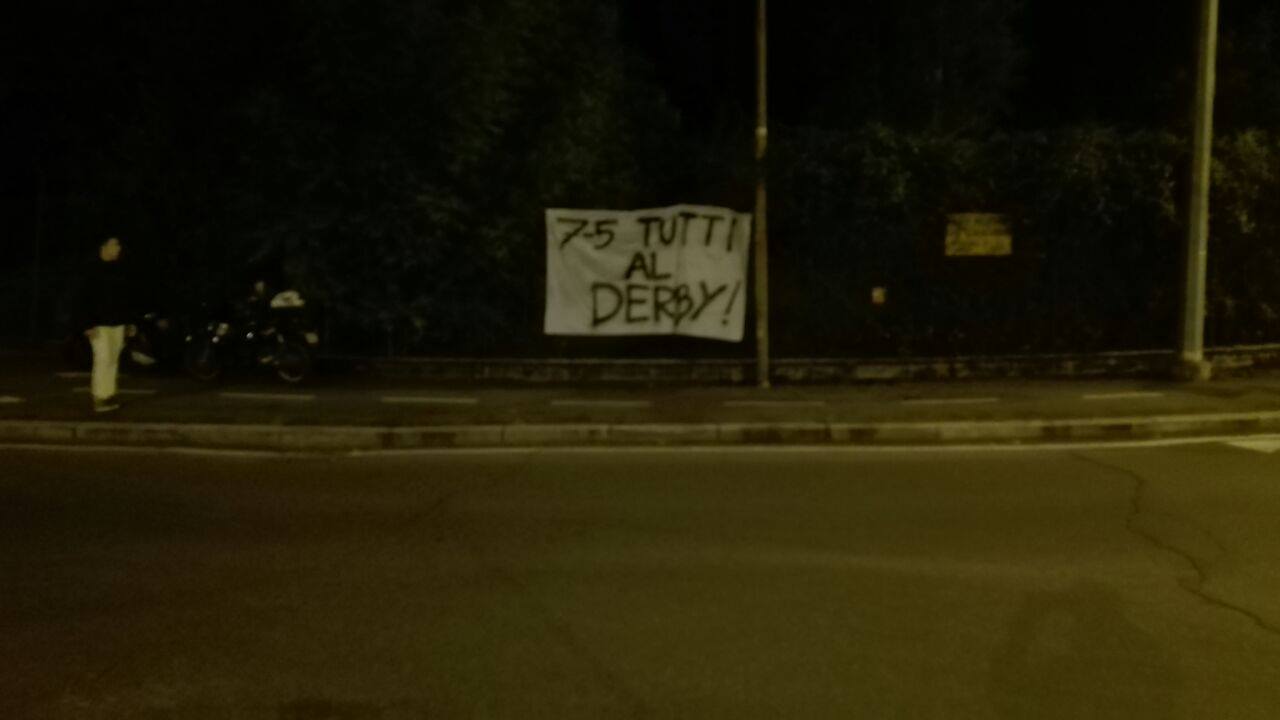 7-5 TUTTI
AL
DERBY!